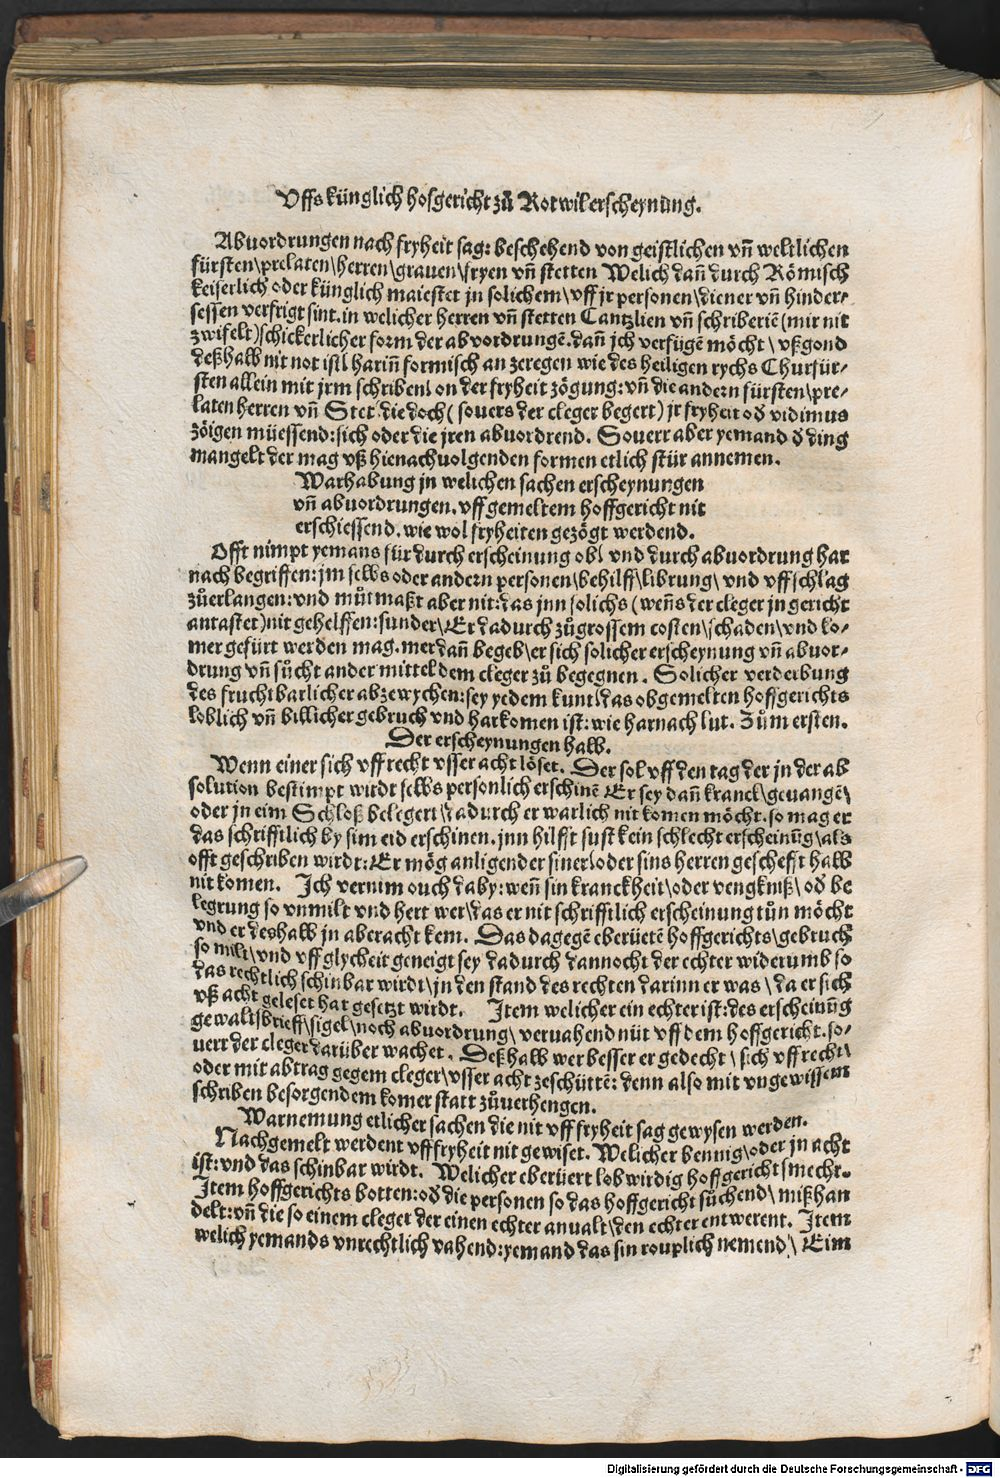 Uffs künglich hofgericht zů Rotwil erscheynung.
Abuordrungen nach fryheit sag: beschehend von geistlichen vñ weltlichen
fürsten\prelaten\herren\grauen\fryen vñ stetten Welich dañ durch Römisch
keiserlich oder künglich maiestet jn solichem\vff jr personen\diener vñ hinder⸗
sessen verfrigt sint. in welicher herren vñ stetten Cantzlien vñ schriberiē (mir nit
zwifelt) schickerlicher form der abvordrungē. dañ jch verfügē möcht\vßgond
deßhalb nit not ist\ hariñ formisch an zeregen wie des heiligen rychs Churfür⸗
sten allein mit jrm schriben\ on der fryheit zögung: vñ die andern fürsten\pre⸗
laten herren vñ Stet die doch (souers der cleger begert) jr fryheit od̄ vidimus
zöigen müessend: sich oder die jren abuordrend. Souerr aber yemand d̄ ding
mangelt der mag vß hienachuolgenden formen etlich stür annemen.
Warhabung jn welichen sachen erscheynungen
vñ abuordrungen. vff gemeltem hoffgericht nit
erschiessend. wie wol fryheiten gezögt werdend.
Offt nimpt yemans für durch erscheinung ob\ vnd durch abuordrung har
nach begriffen: jm selbs oder andern personen\behilff\librung\ vnd vffschlag
zůerlangen: vnd můtmaßt aber nit: das jnn solichs (weñs der cleger jn gericht
antastet) nit gehelffen: sunder\Er dadurch zů grossem costen\schaden\vnd ko⸗
mer gefürt werden mag. mer dañ begeb\er sich solicher erscheynung vñ abuor⸗
drung vñ sůcht ander mittel dem cleger zů begegnen. Solicher verderbung
des fruchtbarlicher abzewychen: sey yedem kunt\das obgemelten hoffgerichts
loblich vñ billicher gebruch vnd harkomen ist: wie harnach lut. Zům ersten.
Der erscheynungen halb.
Wenn einer sich vff recht vsser acht löset. Der sol vff den tag der jn der ab
solution bestimpt wirdt selbs personlich erschinē Er sey dañ kranck\geuangē\
oder jn eim Schloß belegert\dadurch er warlich nit komen möcht. so mag er
das schrifftlich by sim eid erschinen. jnn hilfft sust kein schlecht erscheinūg\als
offt geschriben wirdt: Er mög anligender siner\oder sins herren geschefft halb
nit komen. Ich vernim ouch daby: weñ sin kranckheit\oder vengkniß\od̄ be
legrung so vnmilt vnd hert wer\das er nit schrifftlich erscheinung tůn möcht
vnd er deshalb jn aberacht kem. Das dagegē eberüetē hoffgerichts\gebruch
so milt\vnd vff glycheit geneigt sey dadurch dannocht der echter widerumb so
das rechtlich schinbar wirdt\jn den stand des rechten darinn er was\da er sich
vß acht geleset hat gesetzt wirdt. Item welicher ein echter ist: des erscheinūg
gewaltsbrieff\sigel\noch abuordrung\ veruahend nüt vff dem hoffgericht. so⸗
uerr der cleger darüber wachet. Deßhalb wer besser er gedecht\sich vff recht\
oder mit abtrag gegem cleger\vsser acht zeschüttē: denn also mit vngewissem
schriben besorgendem komer statt zůuerhengen.
Warnemung etlicher sachen die nit vff fryheit sag gewysen werden.
Nachgemelt werdent vff fryheit nit gewiset. Welicher bennig\oder jn acht
ist: vnd das schinbar wirdt. Welicher eberüert lobwirdig hoffgericht smecht.
Item hoffgerichts botten: od̄ die personen so das hoffgericht sůchend\ mißhan
delt: vñ die so einem cleger der einen echter anualt\den echter entwerent. Item
welich yemands vnrechtlich vahend: yemand das sin rouplich nemend\ Eim
Digitalisierung gefördert durch die Deutsche Forschungsgemeinschaft - DFG